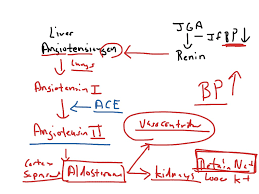 Liver
Angiotensinogen
JGA
If BP ↓
Renin
Lungs
Angiotensin I
ACE
BP ↑
Angiotensin II
Vasoconstrict
Aldosterone
kidneys
Retain Na+
Lower K+